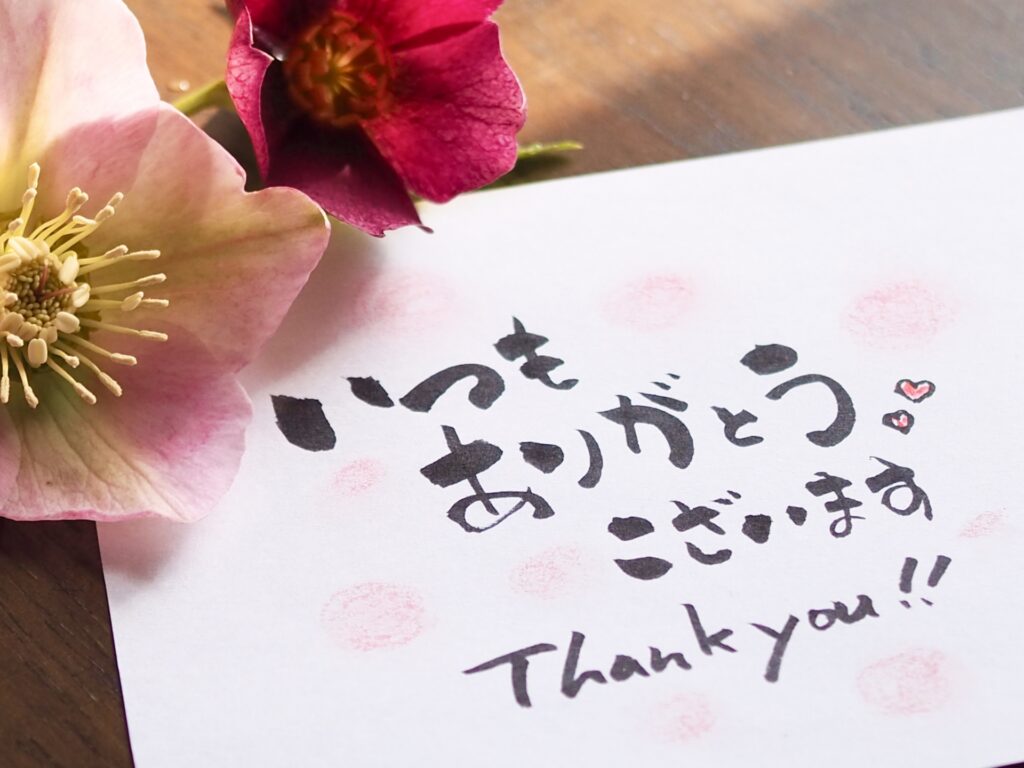 いつも
ありがとう
こざいます
Thank you!!